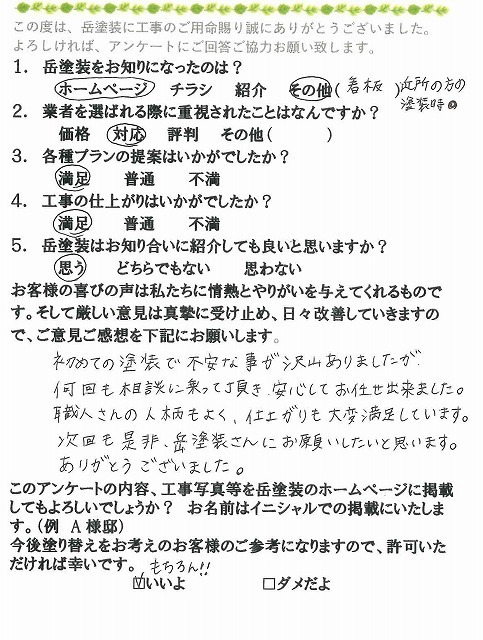 この度は、岳塗装に工事のご用命賜り誠にありがとうございました。
よろしければ、アンケートにご回答ご協力お願い致します。
1. 岳塗装をお知りになったのは？
ホームページ チラシ 紹介 その他( 看板 ) 近所の方の
塗装時
2. 業者を選ばれる際に重視されたことはなんですか？
価格 対応 評判 その他( )
3. 各種プランの提案はいかがでしたか？
満足 普通 不満
4. 工事の仕上がりはいかがでしたか？
満足 普通 不満
5. 岳塗装はお知り合いに紹介しても良いと思いますか？
思う どちらでもない 思わない
お客様の喜びの声は私たちに情熱とやりがいを与えてくれるもので
す。そして厳しい意見は真摯に受け止め、日々改善していきますの
で、ご意見ご感想を下記にお願いします。
初めての塗装で不安な事が沢山ありましたが
何回も相談に乗って頂き、安心してお任せ出来ました。
職人さんの人柄もよく、仕上がりも大変満足しています。
次回も是非、岳塗装さんにお願いしたいと思います。
ありがとうございました。
このアンケートの内容、工事写真等を岳塗装のホームページに掲載
してもよろしいでしょうか？ お名前はイニシャルでの掲載にいたしま
す。(例 A様邸)
今後塗り替えをお考えのお客様のご参考になりますので、許可いた
だければ幸いです。 もちろん!!
☑いいよ □ダメだよ